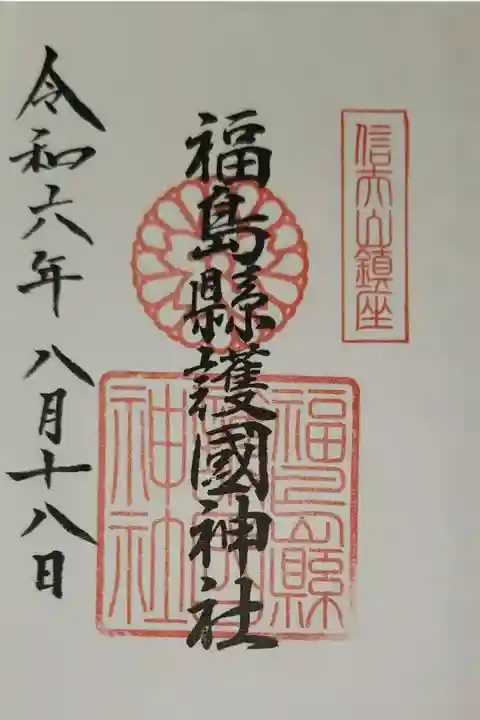 信夫山鎮座
福島縣護國神社
福島縣
護國
神社
令和六年 八月十八日